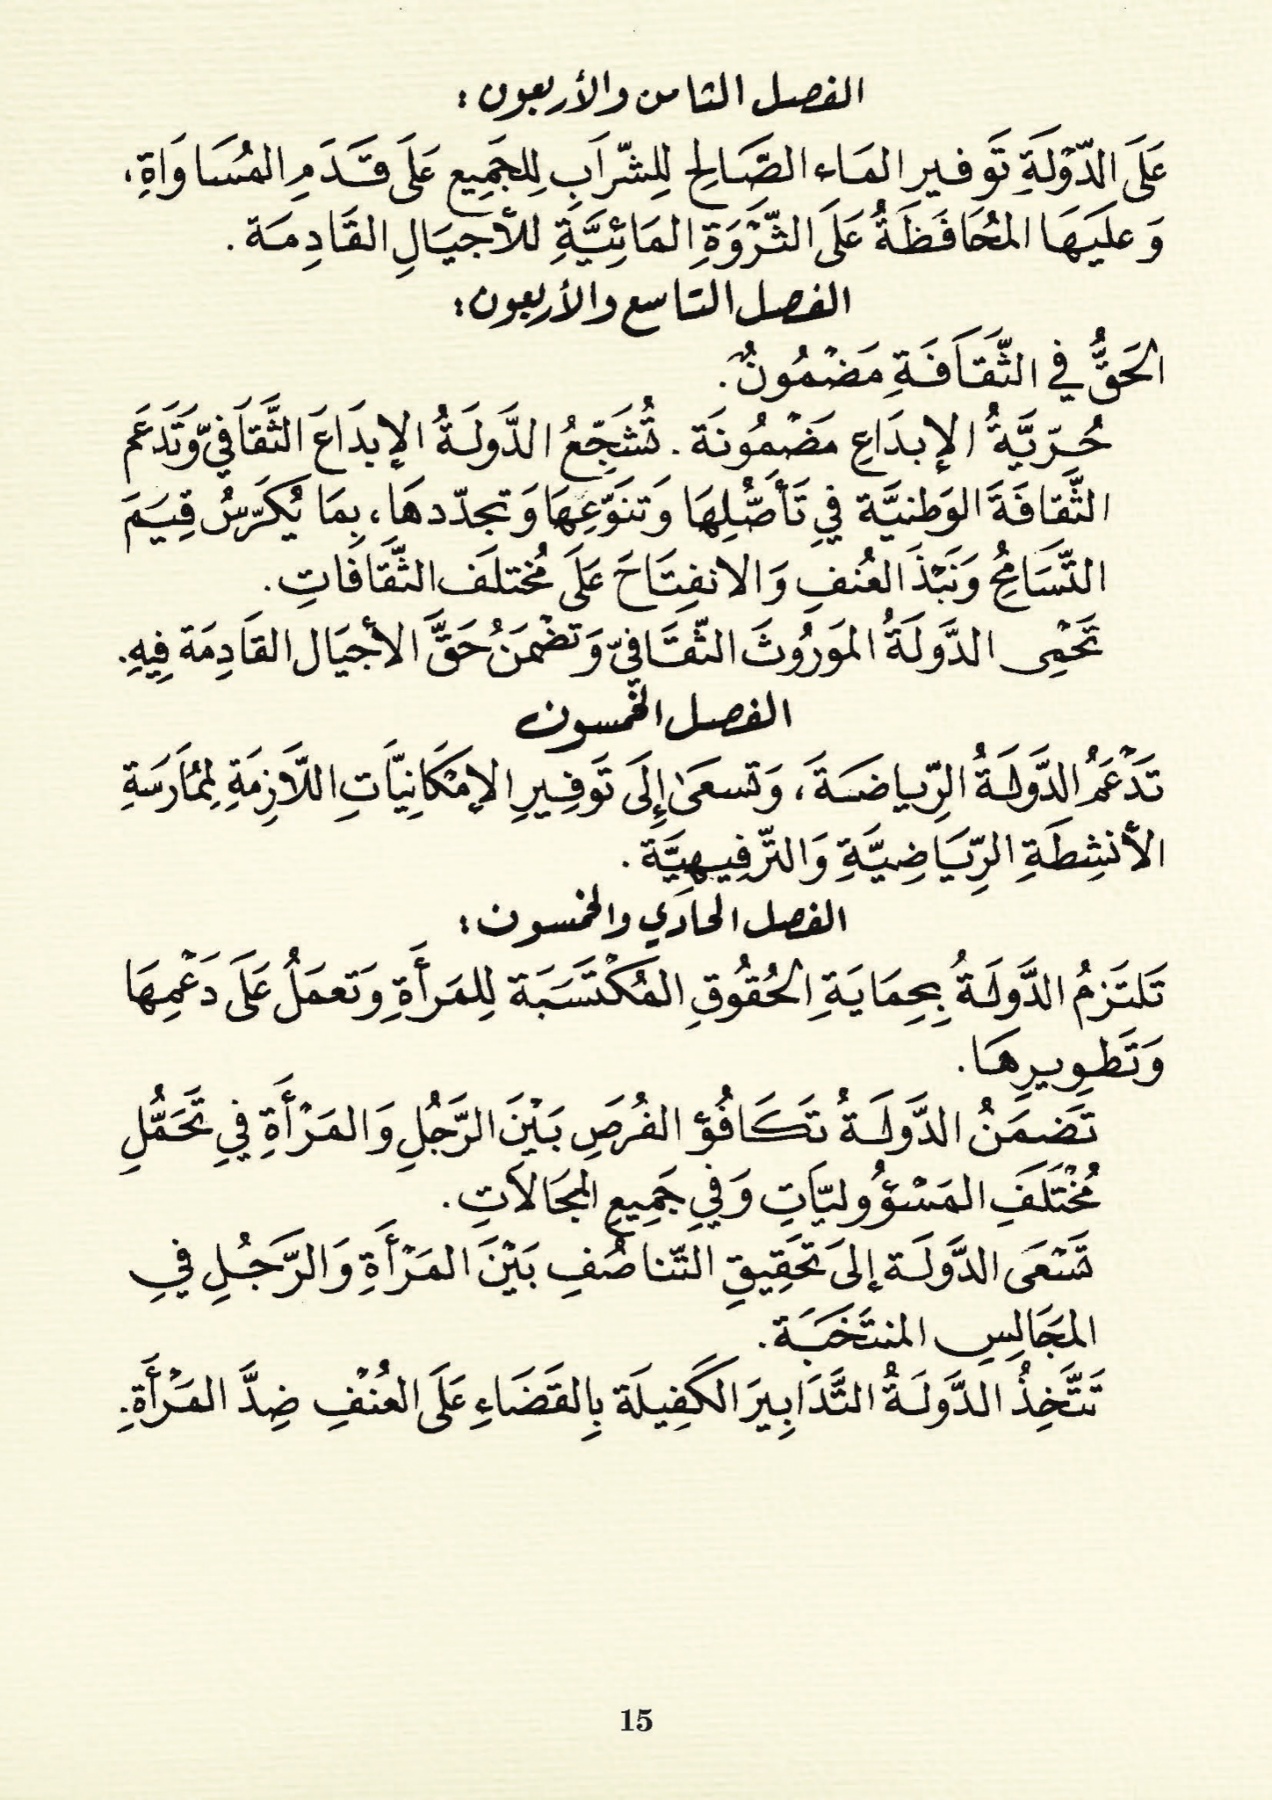 الفصل الثامن والأربعون:
عَلَى الدّوْلَةِ تَوفير الماء الصَّالِحِ لِلشّرَابِ لِلجَمِيع عَلَى قَدَمِ المُسَاوَاةِ،
وَعليَهَا المُحَافَظَةُ عَلَى الثّرْوَةِ المَائِيَّةِ للأجيَالِ القَادِمَة.
الفصل التاسع والأربعون:
الحَقُّ في الثَّقَافَةِ مَضْمُونٌ.
حُرّيَّةُ الإبدَاعِ مَضْمُونَة. تُشَجِّعُ الدَّولَةُ الإبدَاعَ الثَّقافيّ وَتَدعَم
الثَّقافَةَ الوَطنيَّة في تَأصُّلِهَا وَتنَوّعِهَا وَتجدّدهَا، بِمَا يُكَرّسُ قِيَمَ
التَّسَامُحِ وَنَبْذَ العُنفِ وَالانفِتَاحَ عَلَى مُختلَف الثَّقَافَاتِ.
تَحْمِى الدَّولَةُ المَورُوثَ الثّقَافيّ وَتضْمَنُ حَقَّ الأجيَال القَادِمَة فِيهِ.
الفصل الخمسون
تَدْعَمُ الدَّولَةُ الرّياضَةَ، وَتسعَىٰ إِلَى تَوفِيرِ الإمْكَانِيَّاتِ اللَّازِمَةِ لِمُمَارَسَةِ
الأنشِطَةِ الرِّيَاضِيَّةِ وَالتَّرفِيهِيَّة.
الفصل الحادي والخمسون:
تَلتَزمُ الدَّولَةُ بِحِمَايَةِ الحُقُوقِ المُكْتَسَبَة لِلمَرأَةِ وَتَعمَلُ عَلَى دَعْمِهَا
وَتَطويرِهَا.
تَضمَنُ الدَّولَةُ تَكَافُؤ الفُرَصِ بَيْنَ الرَّجُلِ وَالمَرْأَةِ فيِ تَحَمُّلِ
مُخْتَلَفِ المَسْؤُوليّاتِ وَفيِ جَمِيعِ المجَالاَتِ.
تَسْعَى الدَّولَة إلىَ تَحَقِيقِ التّناصُفِ بَيْنَ المَرْأَةِ وَالرَّجُلِ فيِ
المجَالِسِ المنتَخَبَة.
تَتَّخِذُ الدَّولَةُ التَّدَابِيرَ الكَفِيلَة بِالقَضَاءِ عَلَى العُنْفِ ضِدَّ المَرْأَةِ.
15